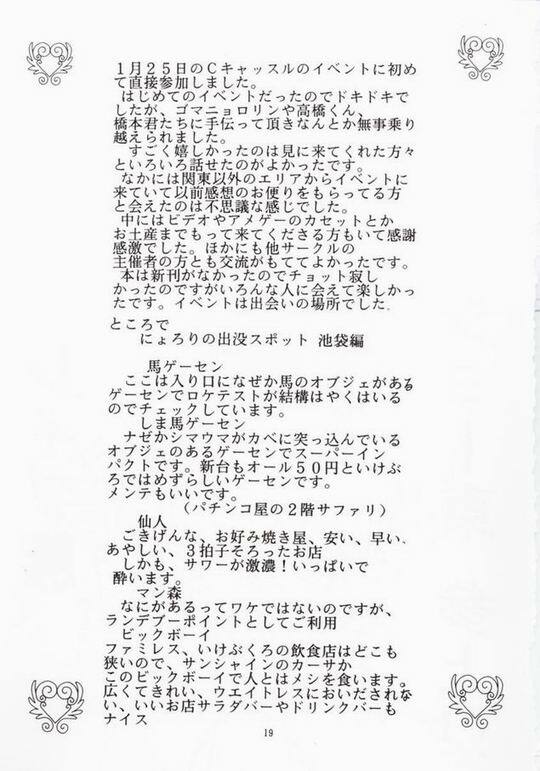 1月25日のCキャッスルのイベントに初め
て直接参加しました。
はじめてのイベントだったのでドキドキで
したが、ゴマニョロリンや高橋くん、
橋本君たちに手伝って頂きなんとか無事乗り
越えられました。
すごく嬉しかったのは見に来てくれた方々
といろいろ話せたのがよかったです。
なかには関東以外のエリアからイベントに
来ていて以前感想のお便りをもらってる方
と会えたのは不思議な感じでした。
中にはビデオやアメゲーのカセットとか
お土産までもって来てくださる方もいて感謝
感激でした。ほかにも他サークルの
主催者の方とも交流がもててよかったです。
本は新刊がなかったのでチョット寂し
かったのですがいろんな人に会えて楽しかっ
たです。イベントは出会いの場所でした.
ところで
にょろりの出没スポット 池袋編
馬ゲーセン
ここは入り口になぜか馬のオブジェがある
ゲーセンでロケテストが結構はやくはいる
のでチェックしています。
しま馬ゲーセン
ナゼかシマウマがカベに突っ込んでいる
オブジェのあるゲーセンでスーパーイン
パクトです。新台もオール50円といけぶ
ろではめずらしいゲーセンです。
メンテもいいです。
(パチンコ屋の2階サファリ)
仙人
ごきげんな、お好み焼き屋、安い、早い、
あやしい、3拍子そろったお店
しかも、サワーが激濃!いっぱいで
酔います。
マン森
なにがあるってワケではないのですが、
ランデブーポイントとしてご利用
ビックボーイ
ファミレス、いけぶくろの飲食店はどこも
狭いので、サンシャインのカーサか
このビックボーイで人とはメシを食います。
広くてきれい、ウエイトレスにおいだされな
い、いいお店サラダバーやドリンクバーも
ナイス
19